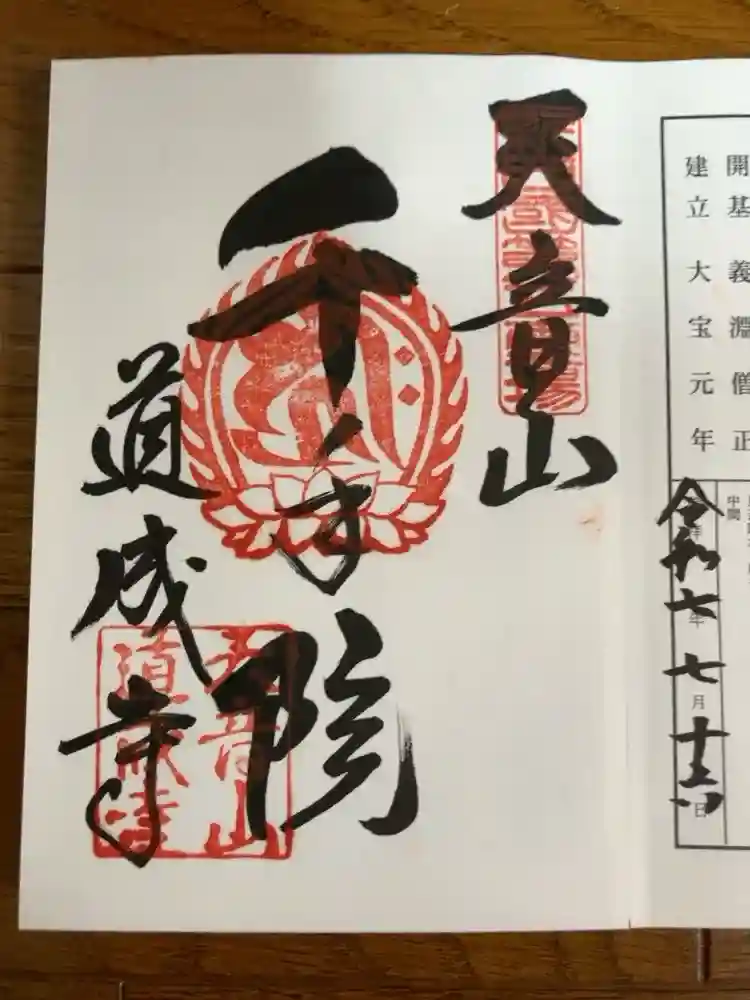 開基 義淵僧正
建立 大宝元年
令和七年 七月 十六日
天音山
千手院
道成寺
天音山
道成寺